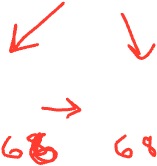 68 68